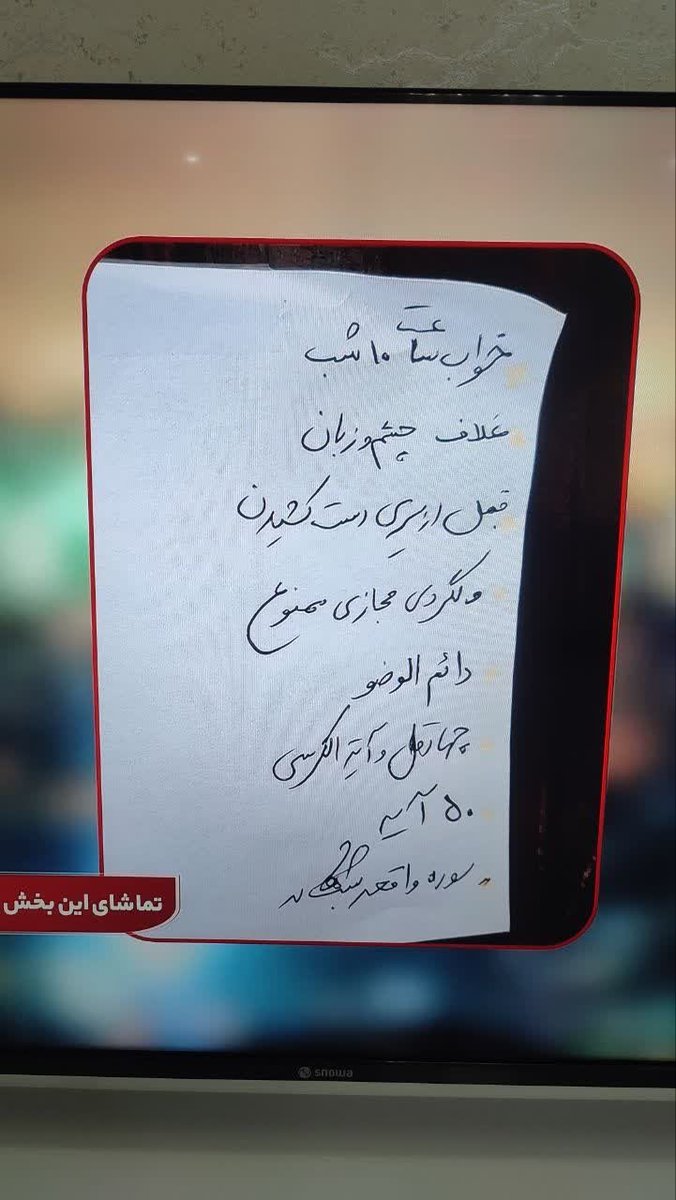 خواب ساعت ۱۰ شب
غلاف چشم و زبان
قبل از سیری دست کشیدن
ولگردی مجازی ممنوع
دائم الوضو
چهارقل و آیة الکرسی
۵۰ آیه
سوره واقعه
تماشای این بخش
snowa